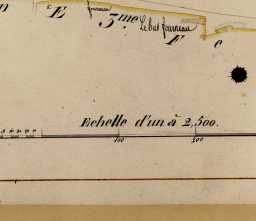 E 3.me F e
Le bas fourneau
Echelle d'un à 2,500.
100 200